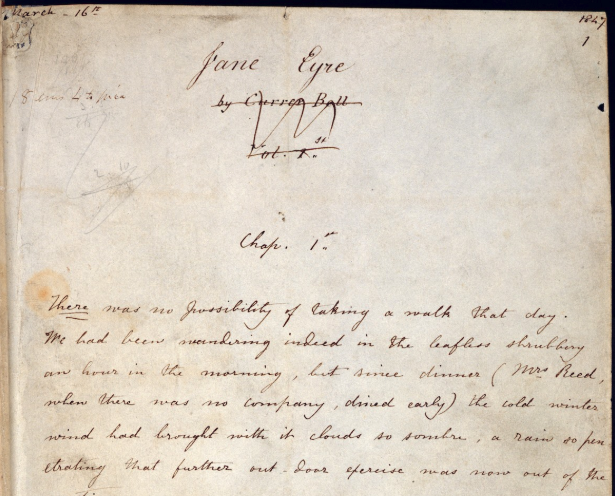 March - 16th
1847
1
Jane Eyre
by Currer Bell
Vol. 1.st
Chap. 1st
There was no possibility of taking a walk that day.
We had been wandering indeed in the leafless shrubbery
an hour in the morning, but since dinner (Mrs Reed,
when there was no company, dined early) the cold winter
wind had brought with it clouds so sombre, a rain so pen
etrating that further out-door exercise was now out of the